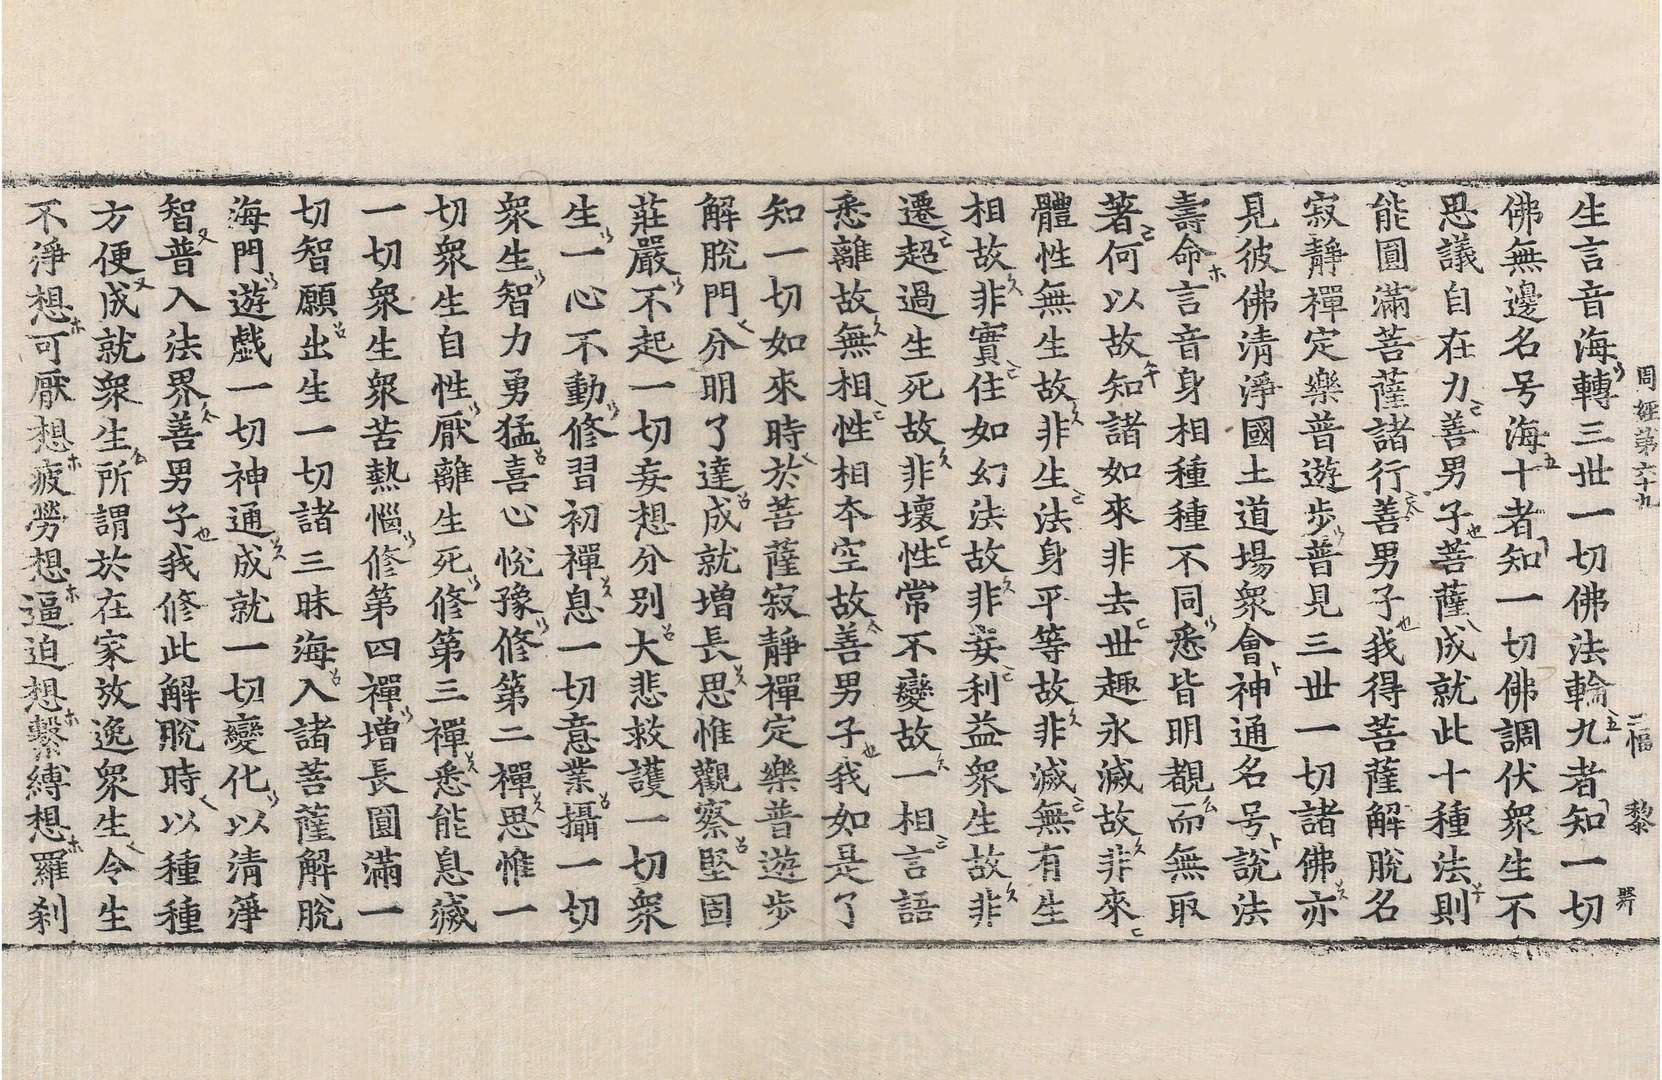 周經第六十九 二幅 黎
生言音海轉三世一切佛法輪九者知一切
佛無邊名号海十者知一切佛調伏衆生不
思議自在力善男子菩薩成就此十種法則
能圓滿菩薩諸行善男子我得菩薩解脫名
寂靜禪定樂普遊步普見三世一切諸佛亦
見彼佛清淨國土道場衆會神通名号說法
壽命言音身相種種不同悉皆明覩而無取
著何以故知諸如來非去世趣永滅故非來
體性無生故非生法身平等故非滅無有生
相故非實住如幻法故非妄利益衆生故非
遷超過生死故非壞性常不變故一相言語
悉離故無相性相本空故善男子我如是了
知一切如來時於菩薩寂靜禪定樂普遊步
解脫門分明了達成就增長思惟觀察堅固
莊嚴不起一切妄想分別大悲救護一切衆
生一心不動修習初禪息一切意業攝一切
衆生智力勇猛喜心悅豫修第二禪思惟一
切衆生自性厭離生死修第三禪悉能息滅
一切衆生衆苦熱惱修第四禪增長圓滿一
切智願出生一切諸三昧海入諸菩薩解脫
海門遊戲一切神通成就一切變化以清淨
智普入法界善男子我修此解脫時以種種
方便成就衆生所謂於在家放逸衆生令生
不淨想可厭想疲勞想逼迫想繫縛想羅刹